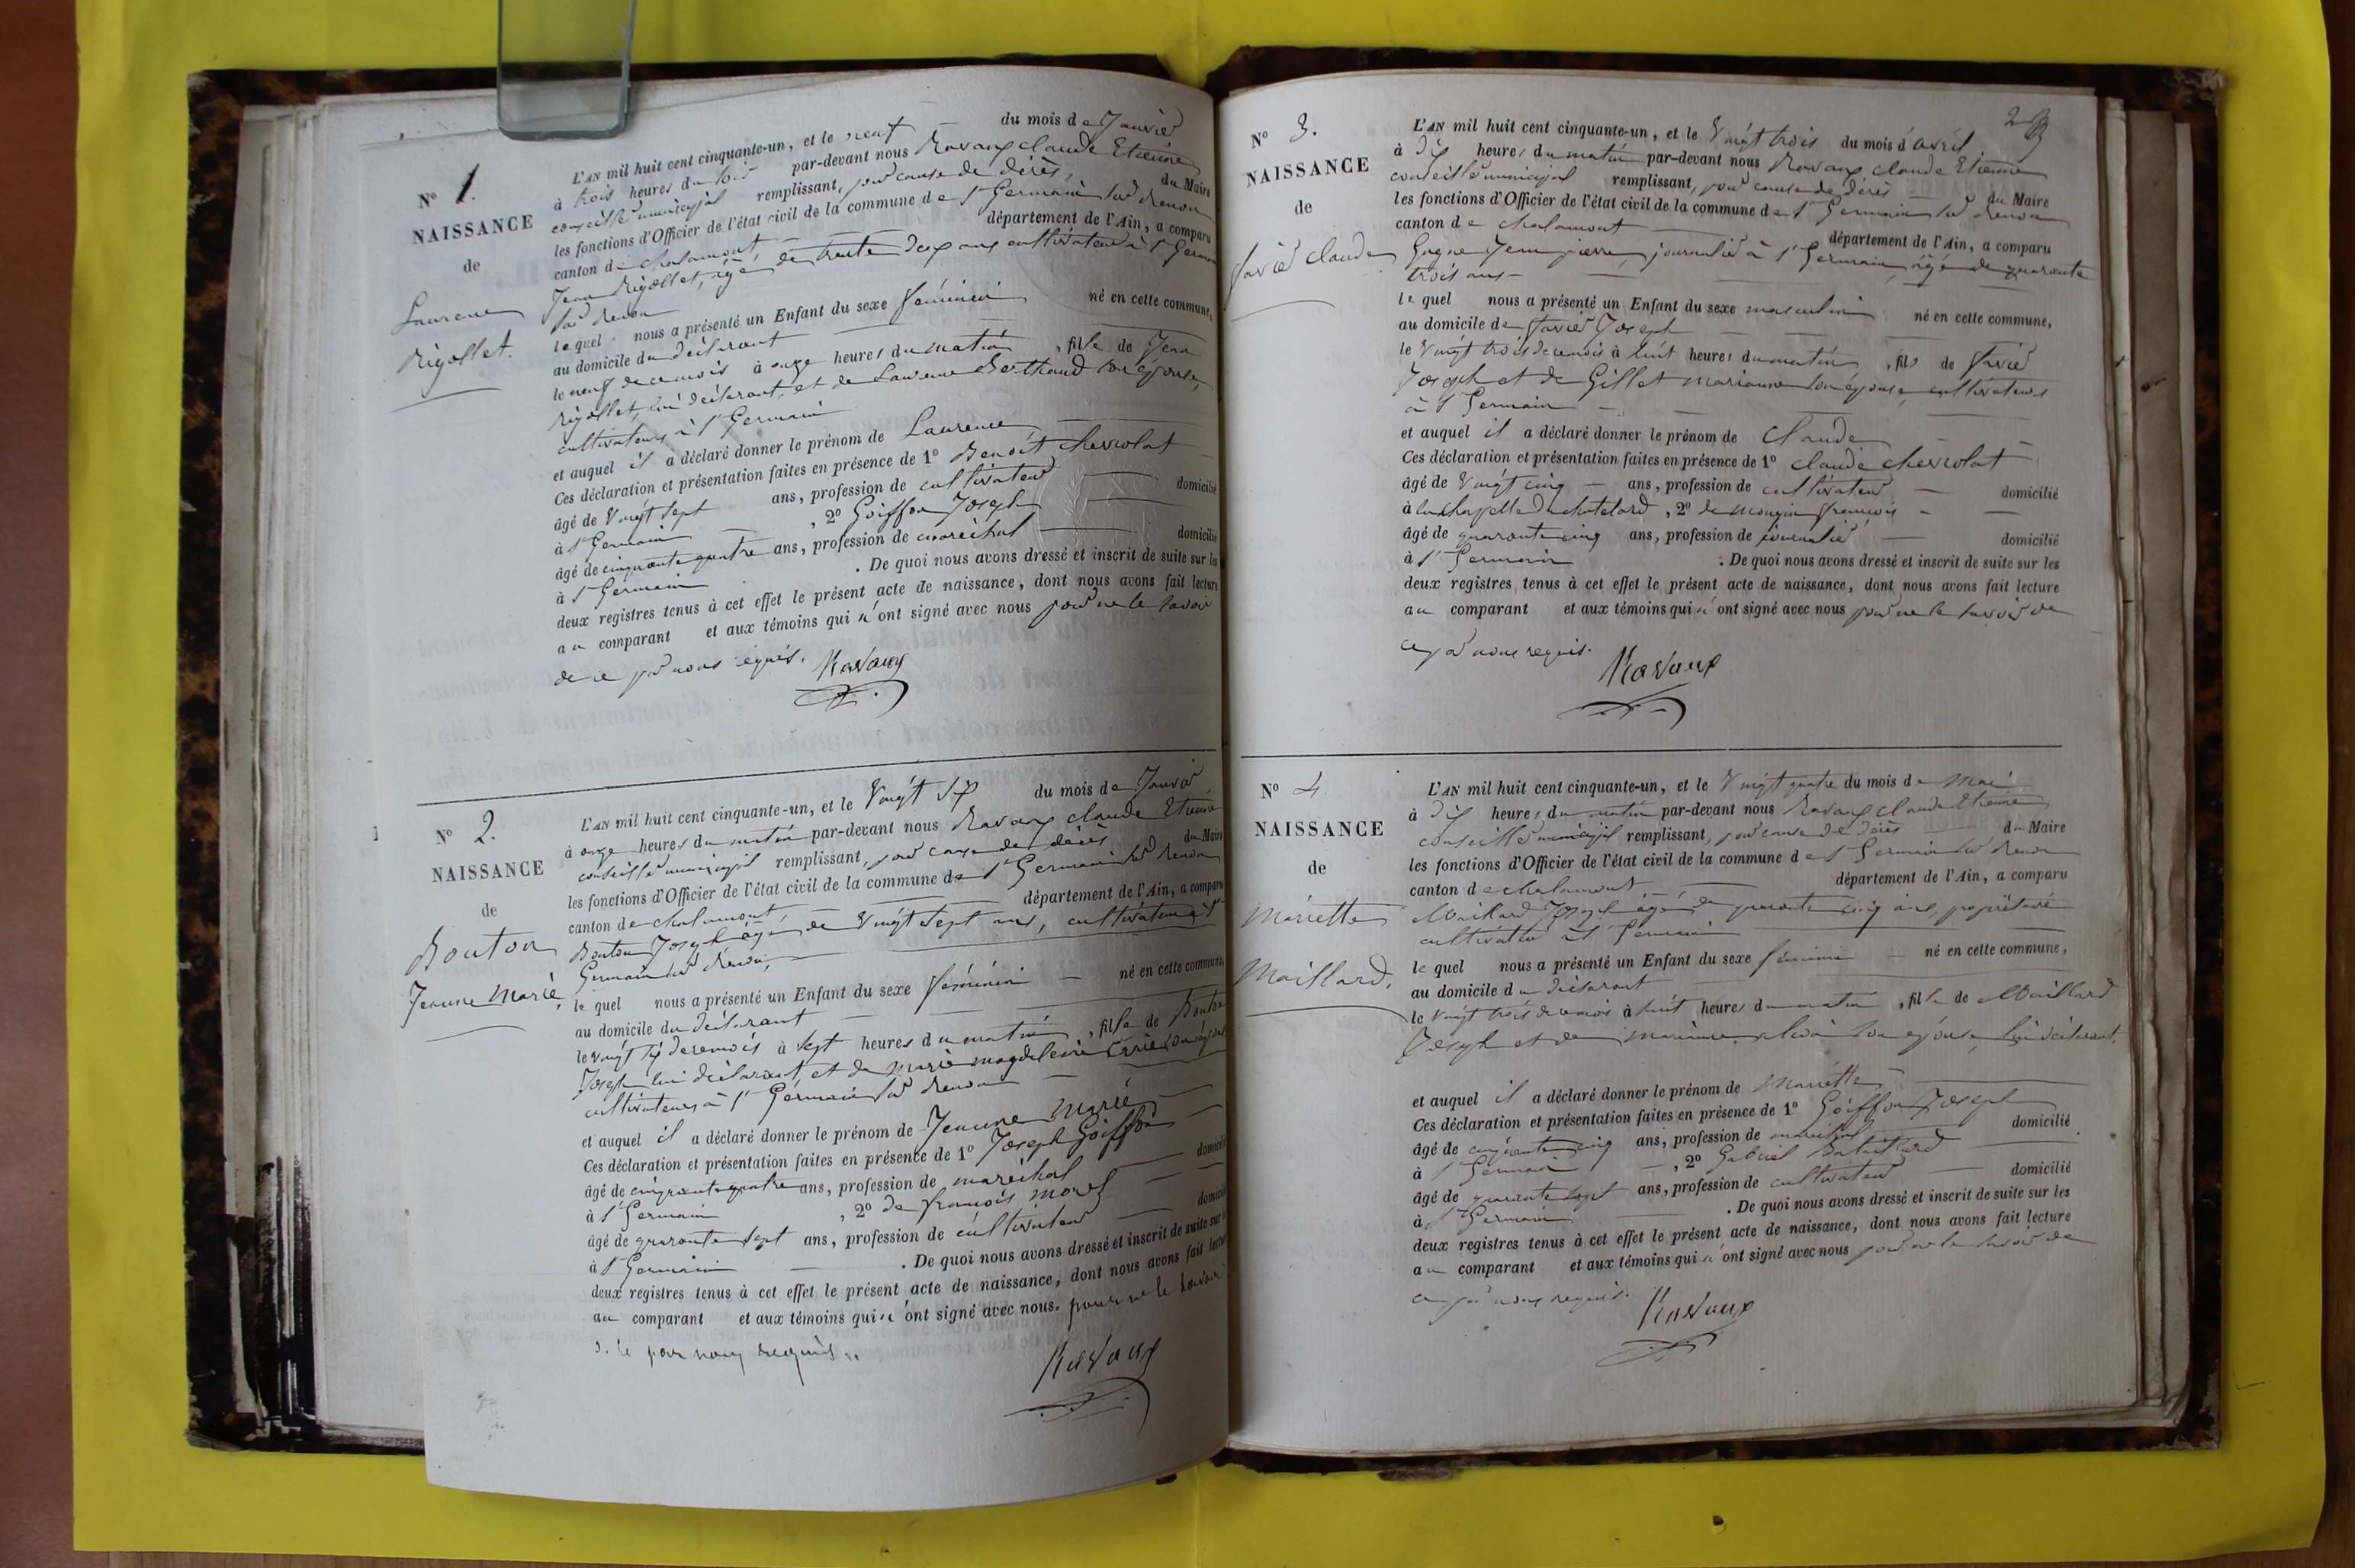 N° 1.
NAISSANCE
de
Laurence
Rigollet.
L'AN mil huit cent cinquante-un, et le neuf du mois de Janvier
à trois heures du soir par-devant nous Ravaux claude Etienne
conseiller municipal remplissant, pour cause de décès, du Maire
les fonctions d'Officier de l'état civil de la commune de St Germain sur Renon
canton de chalamont département de l'Ain, a comparu
Jean Rigollet, agé de trente deux ans cultivateur à St Germain
sur Renon
lequel nous a présenté un Enfant du sexe féminin né en cette commune,
au domicile du déclarant
le neuf de ce mois à onze heures du matin, fille de Jean
rigollet, lui déclarant, et de Laurence Berthaud son épouse,
cultivateurs à St Germain
et auquel il a déclaré donner le prénom de Laurence
Ces déclaration et présentation faites en présence de 1° Benoît chevrolat
âgé de vingt sept ans, profession de cultivateur domicilié
à St Germain, 2° Goiffon Joseph
âgé de cinquante quatre ans, profession de maréchal domicilié
à St Germain. De quoi nous avons dressé et inscrit de suite sur les
deux registres tenus à cet effet le présent acte de naissance, dont nous avons fait lecture
au comparant et aux témoins qui n'ont signé avec nous pour ne le savoir
de ce par nous requis. Ravaux
N° 2.
NAISSANCE
de
Bouton
Jeanne Marie
L'AN mil huit cent cinquante-un, et le vingt six du mois de Janvier
à onze heures du matin par-devant nous Ravaux claude Etienne
conseiller municipal remplissant, pour cause de décès du Maire
les fonctions d'Officier de l'état civil de la commune de St Germain sur Renon
canton de chalamont département de l'Ain, a comparu
Bouton Joseph âgé de vingt sept ans, cultivateur à St
Germain sur Renon,
lequel nous a présenté un Enfant du sexe féminin né en cette commune,
au domicile du déclarant
le vingt six de ce mois à sept heures du matin, fille de Bouton
Joseph lui déclarant, et de marie magdeleine son épouse
cultivateurs à St Germain sur Renon
et auquel il a déclaré donner le prénom de Jeanne Marie
Ces déclaration et présentation faites en présence de 1° Joseph Goiffon
âgé de cinquante quatre ans, profession de maréchal domicilié
à St Germain, 2° de françois morel
âgé de quarante sept ans, profession de cultivateur domicilié
à St Germain. De quoi nous avons dressé et inscrit de suite sur les
deux registres tenus à cet effet le présent acte de naissance, dont nous avons fait lecture
au comparant et aux témoins qui n'ont signé avec nous. pour ne le savoir
de ce par nous requis.
Ravaux
2
N° 3.
NAISSANCE
de
favier claude
L'AN mil huit cent cinquante-un, et le vingt trois du mois d'avril
à dix heures du matin par-devant nous Ravaux claude Etienne
conseiller municipal remplissant, pour cause de décès du Maire
les fonctions d'Officier de l'état civil de la commune de St Germain sur Renon
canton de chalamont département de l'Ain, a comparu
Jean pierre, journalier à St Germain, âgé de quarante
trois ans
lequel nous a présenté un Enfant du sexe masculin né en cette commune,
au domicile de favier Joseph
le vingt trois de ce mois à huit heures du matin, fils de favier
Joseph et de Gillet marianne son épouse, cultivateurs
à St Germain
et auquel il a déclaré donner le prénom de Claude
Ces déclaration et présentation faites en présence de 1° claude chevrolat
âgé de vingt cinq ans, profession de cultivateur domicilié
à la chapelle du chatelard, 2° de mongin françois
âgé de quarante cinq ans, profession de journalier domicilié
à St Germain. De quoi nous avons dressé et inscrit de suite sur les
deux registres tenus à cet effet le présent acte de naissance, dont nous avons fait lecture
au comparant et aux témoins qui n'ont signé avec nous pour ne le savoir de
ce par nous requis.
Ravaux
N° 4
NAISSANCE
de
Mariette
Maillard.
L'AN mil huit cent cinquante-un, et le vingt quatre du mois de Mai
à dix heures du matin par-devant nous Ravaux claude Etienne
conseiller municipal remplissant, pour cause de décès du Maire
les fonctions d'Officier de l'état civil de la commune de St Germain sur Renon
canton de chalamont département de l'Ain, a comparu
Maillard Joseph âgé de quarante cinq ans, propriétaire
cultivateur à St Germain
lequel nous a présenté un Enfant du sexe féminin né en cette commune,
au domicile du déclarant
le vingt trois de ce mois à huit heures du matin, fille de Maillard
Joseph et de marianne son épouse, lui déclarant,
et auquel il a déclaré donner le prénom de Mariette
Ces déclaration et présentation faites en présence de 1° Goiffon Joseph
âgé de cinquante cinq ans, profession de maréchal domicilié
à St Germain, 2° Gabriel Bataillard
âgé de quarante sept ans, profession de cultivateur domicilié
à St Germain. De quoi nous avons dressé et inscrit de suite sur les
deux registres tenus à cet effet le présent acte de naissance, dont nous avons fait lecture
au comparant et aux témoins qui n'ont signé avec nous pour ne le savoir de
ce par nous requis. Ravaux